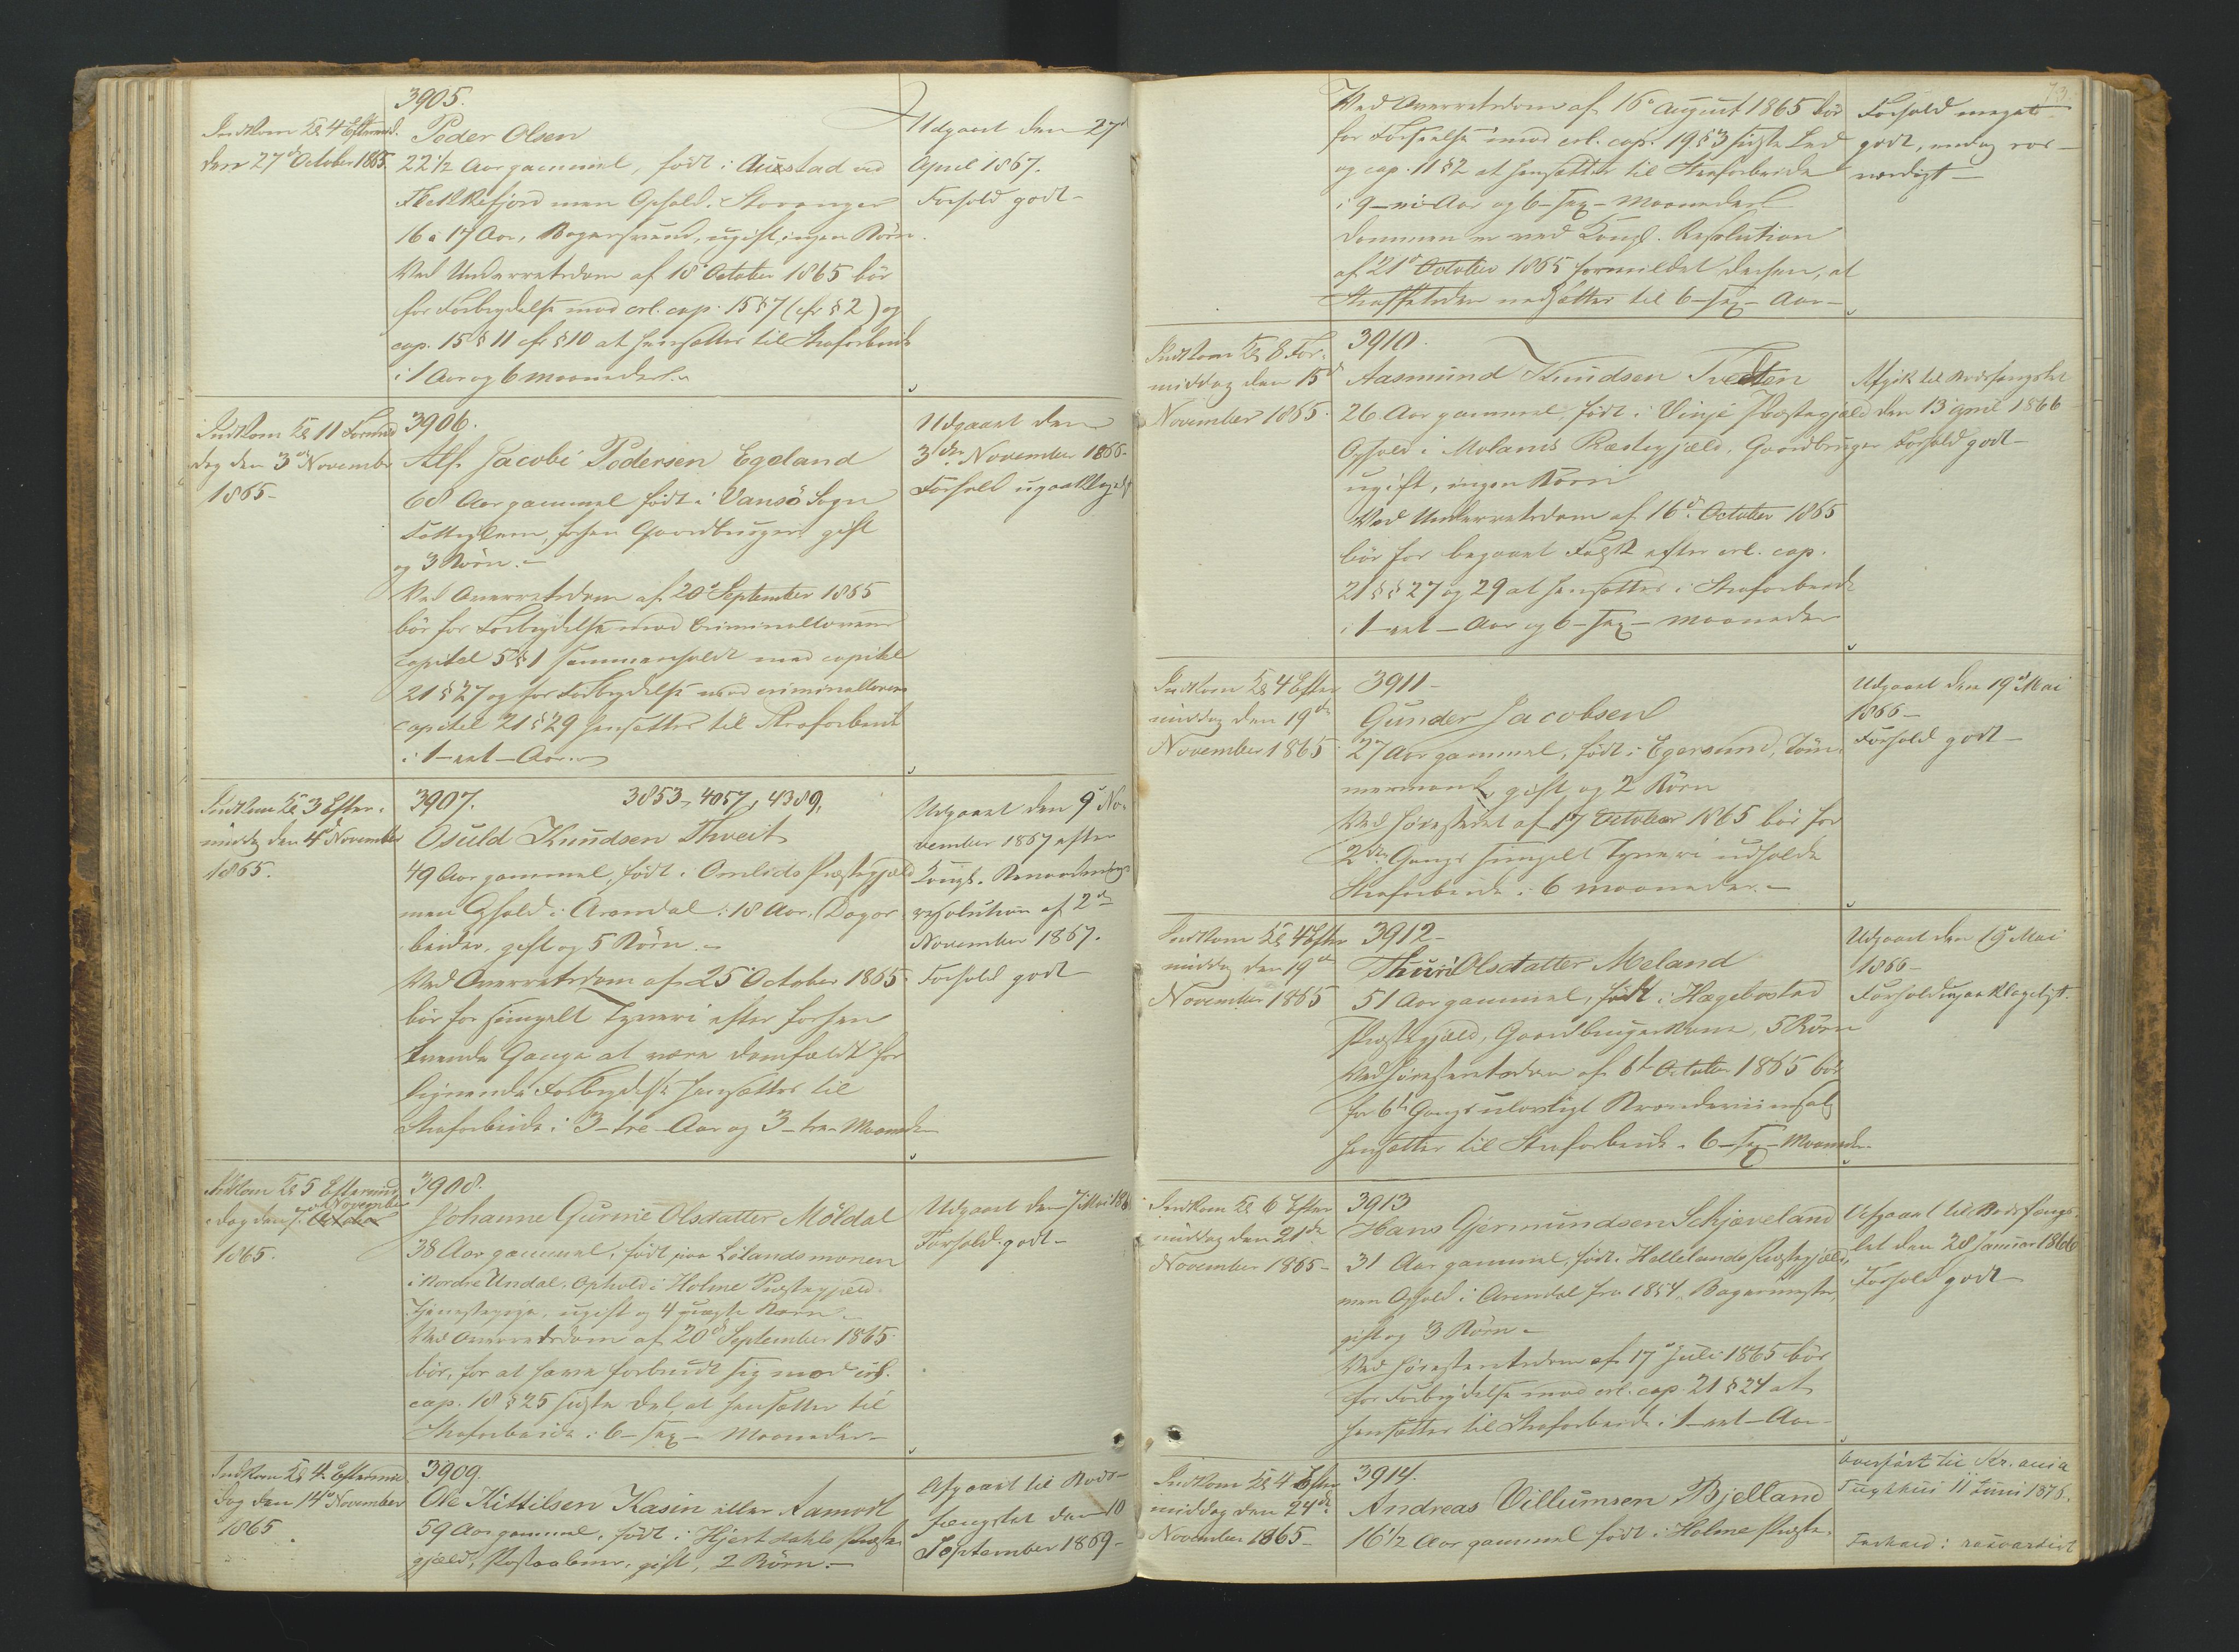 3905.
Indkom Kl 4 Eftermid.
den 27de October 1865.
Peder Olsen
22 1/2 Aar gammel, født i Austad ved
Flekkefjord men Ophold i Stavanger
16 à 17 Aar, Bagersvend, ugift, ingen Børn.
Ved Underretsdom af 18de October 1865 bør
for Forbrydelse mod crl. cap. 15 § 7 (cfr § 2) og
cap. 15 § 11 cfr § 10 at hensættes til Strafarbeide
i 1 Aar og 6 Maaneder.
Udgaaet den 27de
April 1867.
Forhold godt-
Indkom Kl 11 Formid
dag den 3de November
1865-
3906.
Alf Jacobi Pedersen Egeland
68 Aar gammel født i Vansö Sogn
Fattiglem, forhen Gaardbruger gift
og 3 Børn.-
Ved Overretsdom af 20de September 1865
bør for Forbrydelse mod Criminallovens
Capitel 5 § 1 sammenholdt med capitel
21 § 27 og for Forbrydelse mod criminallovens
capitel 21 § 29 hensættes til Strafarbeide
i 1-eet-Aar.
Udgaaet den
3die November 1866-
Forhold upaaklageligt
Indkom Kl 3 Efter-
middag den 4de November
1865.
3907. 3853, 4057, 4389,
Osuld Knudsen Thveit
49 Aar gammel, født i Omlids Præstegjæld
men Ophold i Arendal i 18 Aar, Dagar
beider, gift og 5 Børn.-
Ved Overretsdom af 25de October 1865
bør for simpelt Tyveri efter forhen
trende Gange at være domfældt for
lignende Forbrydelse hensættes til
Strafarbeide i 3-tre-Aar og 3-tre-Maaneder
Udgaaet den 9de No-
vember 1867 efter
Kongl. Benaadnings
resolution af 2den
November 1867.
Forhold godt
Indkom Kl 5 Eftermid
dag den 7de November
1865.
3908.
Johanne Gurine Olsdatter Möldal
38 Aar gammel, født paa Lölandsmonen
i Nordre Undal, Ophold i Holme Præstegjæld
Tjenestepige, ugift og 4 uægte Børn-
Ved Overretsdom af 20de September 1865
bør, for at have forbrudt sig mod crl.
cap. 18 § 25 sidste Del at hensættes til
Strafarbeide i 6-sex-Maaneder-
Udgaaet den 7 Mai 186
Forhold godt-
Indkom Kl 4 Eftermid
dag den 14de November
1865
3909.
Ole Kittilsen Kasin eller Aamodt
59 Aar gammel, født i Hjertdahls Præste
gjæld, Postaabner, gift, 2 Børn.-
Afgaaet til Bods-
fængslet den 10
September 1869-
Ved Overretsdom af 16de August 1865 bör
for Forseelse mod crl. cap. 19 § 3 sidste Led
og cap. 11 § 2 at hensættes til Strafarbeide
i 9-ni-Aar og 6-sex-Maaneder
Dommen er ved Kongl. Resolution
af 21de October 1865 formildet derhen, at
Straffetiden nedsættes til 6-sex-Aar-
Forhold meget
godt, endog ros-
værdigt-
Indkom Kl 8 For-
middag den 15de
November 1865.
3910.
Aasmund Knudsen Tvedten
26 Aar gammel, født i Vinje Præstegjæld
Ophold i Molands Præstegjæld, Gaardbruger
ugift, ingen Børn
Ved Underretsdom af 16de October 1865
bör for begaaet Falsk efter crl. cap.
21 §§ 27 og 29 at hensættes i Strafarbeide
i 1-eet-Aar og 6-sex-Maaneder
Afgik til Bodsfængslet
den 13 April 1866
Forhold godt-
Indkom Kl 4 Efter
middag den 19de
November 1865
3911-
Gunder Jacobsen
27 Aar gammel, født i Egersund, Töm-
mermand, gift og 2 Børn
Ved Höiesteret af 17 October 1865 bör for
2den Gangs simpelt Tyveri udholde
Strafarbeide i 6 Maaneder.-
Udgaaet den 19de Mai
1866-
Forhold godt-
Indkom Kl 4 Efter
middag den 19de
November 1865
3912-
Thuri Olsdatter Meland
51 Aar gammel, født i Hægebostad
Præstegjæld, Gaardbrugerkone, 5 Børn
Ved Höiesteretsdom af 6te October 1865 bör
for 6te Gangs ulovligt Brændeviinsalg
hensættes til Strafarbeide i 6-sex-Maaneder
Udgaaet den 19de Mai
1866-
Forhold upaaklageligt.
Indkom Kl 6 Efter
middag den 21de
November 1865-
3913
Hans Gjermundsen Schjæveland
31 Aar gammel, født i Hellelands Præstegjæld,
men Ophold i Arendal fra 1854, Bagermester,
gift og 3 Børn-
Ved Höiesteretsdom af 17de Juli 1865 bör
for Forbrydelse mod crl. cap. 21 § 24 at
hensættes til Strafarbeide i 1-eet-Aar-
Afgaaet til Bodsfængs-
let den 28 Januar 1866
Forhold godt-
Indkom Kl 4 Efter
middag den 24de
November 1865-
3914.
Andreas Villumsen Bjelland
16 1/2 Aar gammel født i Holme Præste-
Overført til Kr.ania
Tugthus 11 Juni 1875.
Forhold: rosværdigt